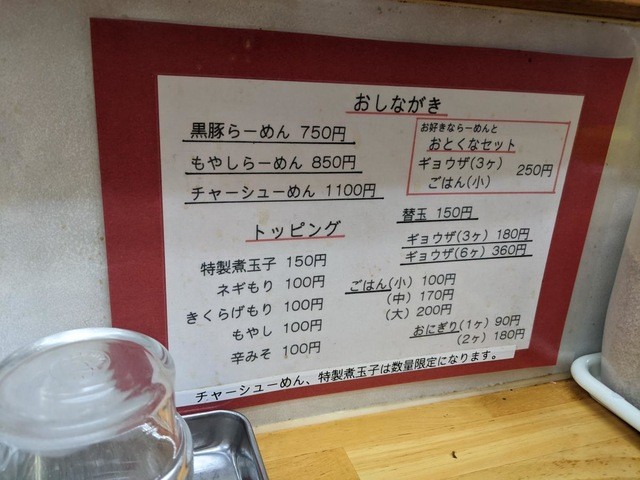 おしながき
黒豚らーめん 750円
もやしらーめん 850円
チャーシューめん 1100円
トッピング
特製煮玉子 150円
ネギもり 100円
きくらげもり 100円
もやし 100円
辛みそ 100円
お好きならーめんと
おとくなセット
ギョウザ(3ヶ)
ごはん(小)
250円
替玉 150円
ギョウザ(3ヶ) 180円
ギョウザ(6ヶ) 360円
ごはん(小) 100円
(中) 170円
(大) 200円
おにぎり(1ヶ) 90円
(2ヶ) 180円
チャーシューめん、特製煮玉子は数量限定になります。